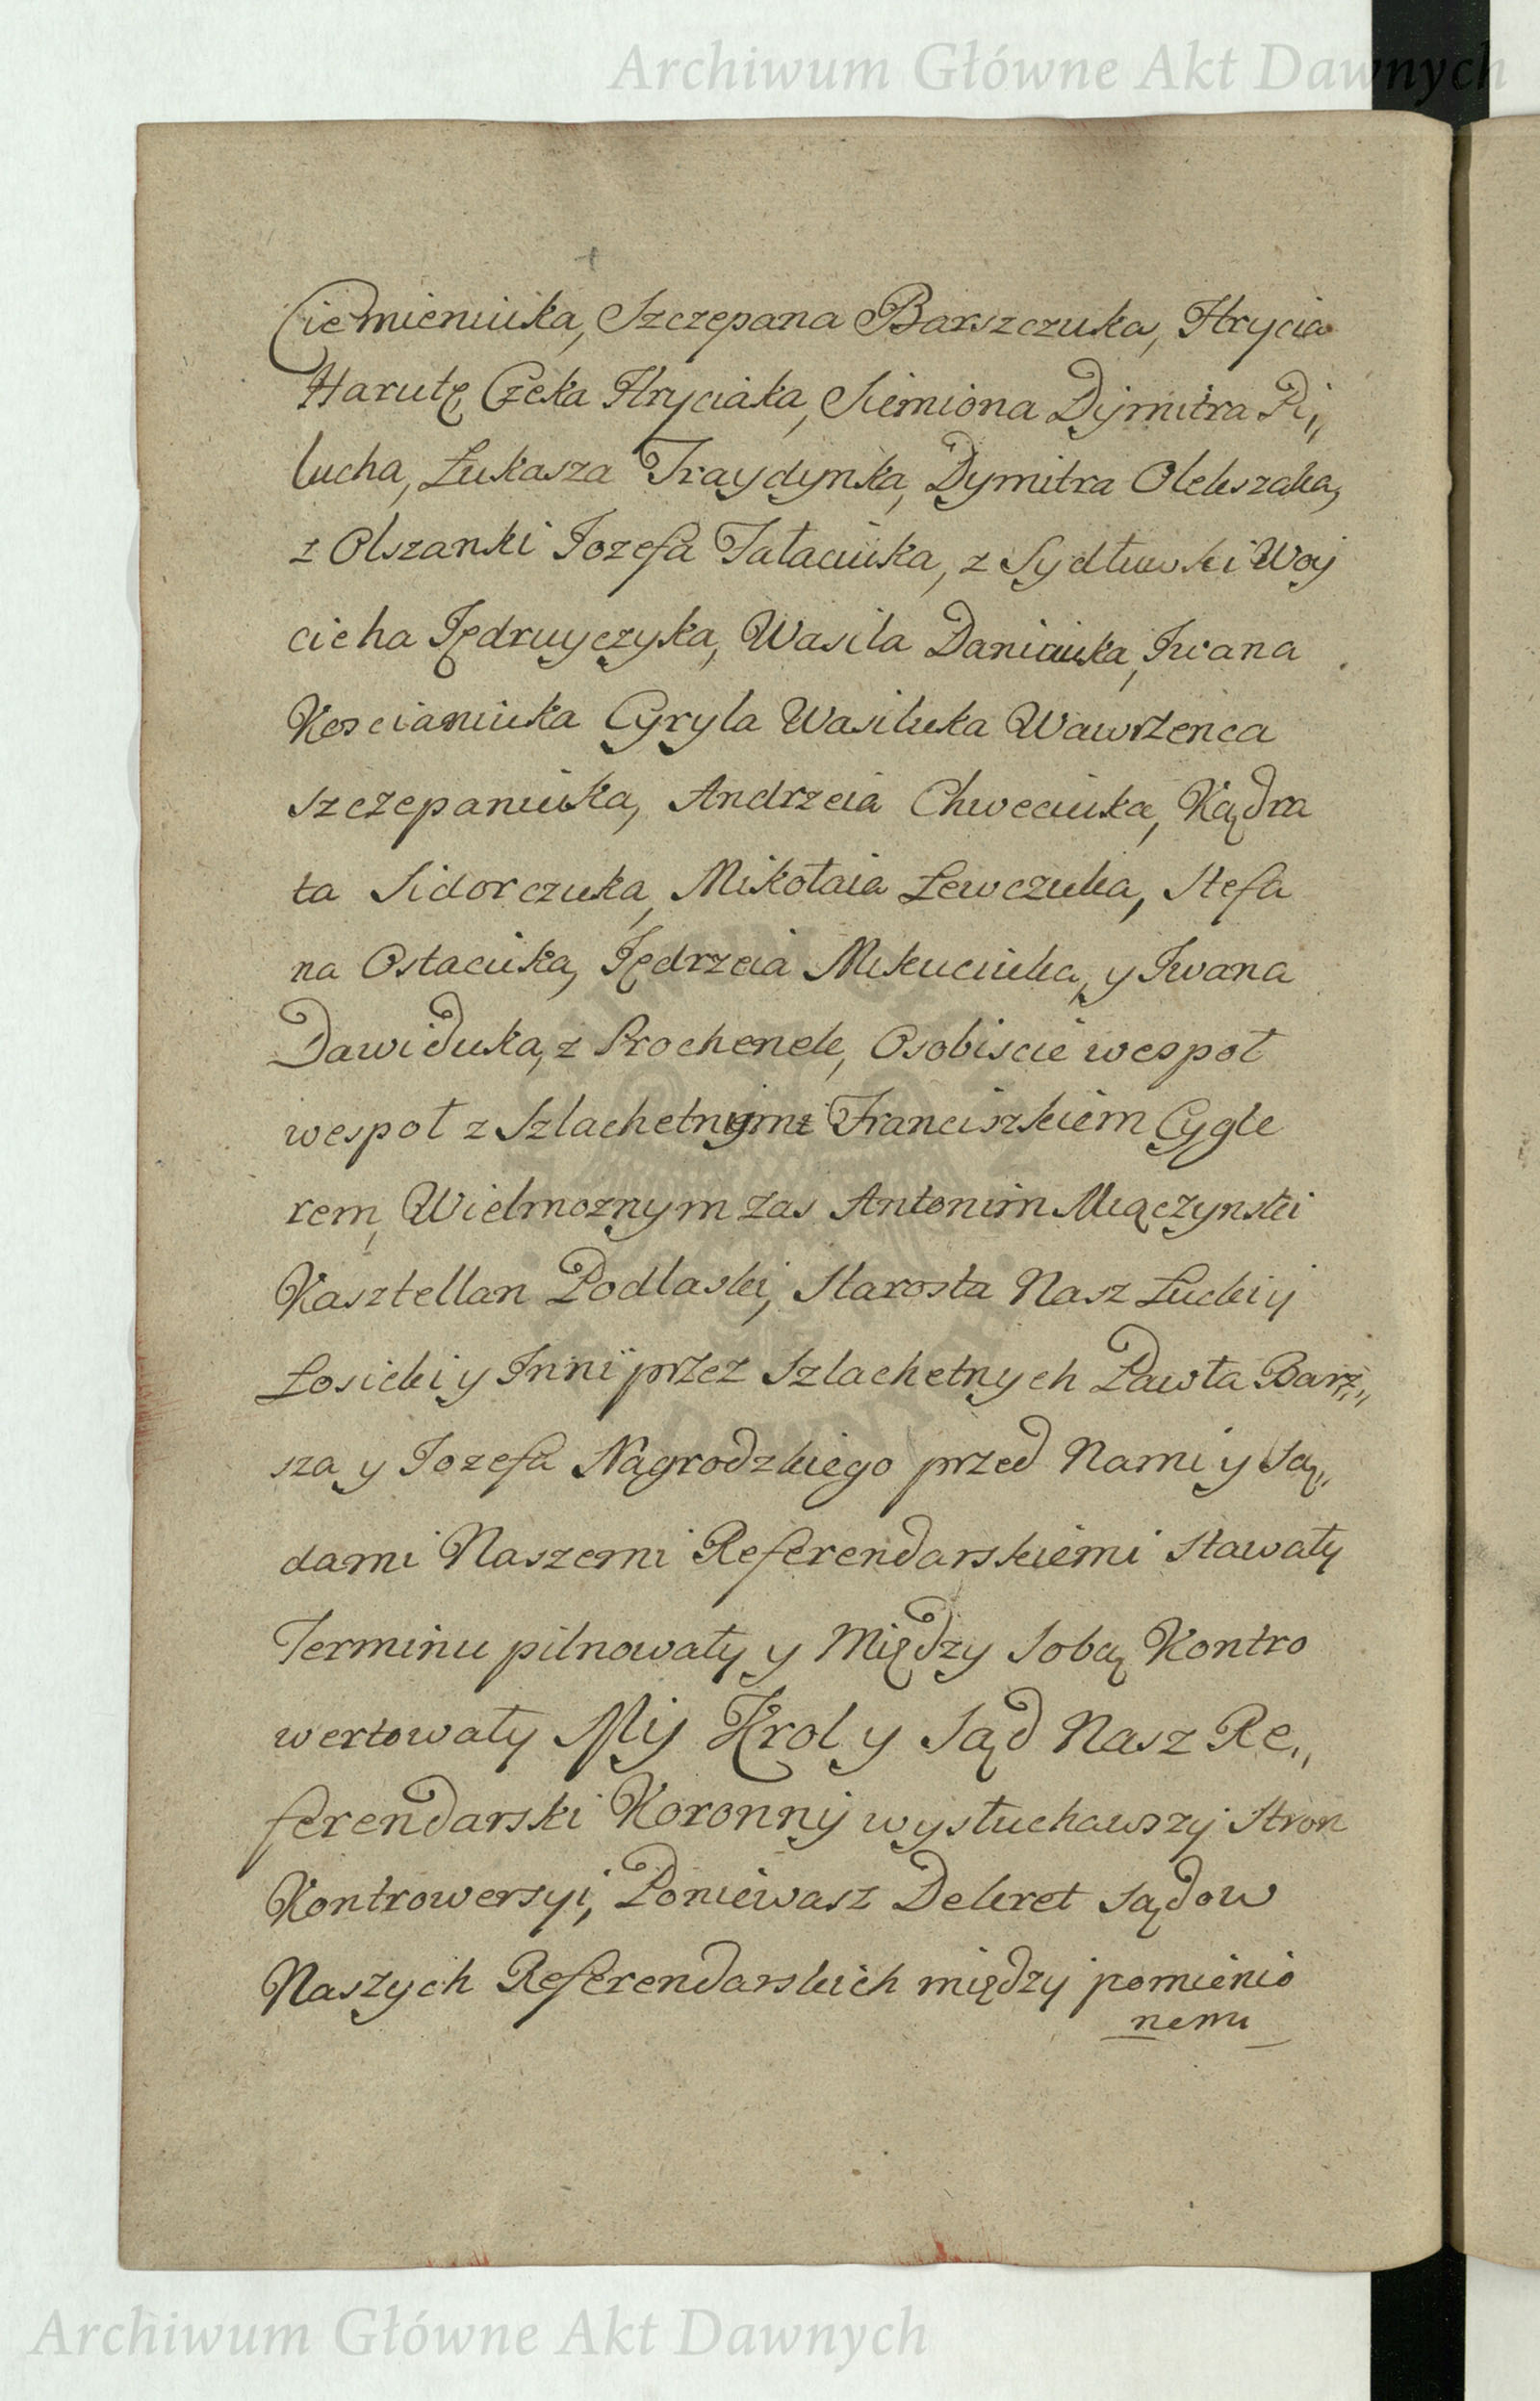 Archiwum Główne Akt Dawnych
Ciemieniuka, Szczepana Barszczuka, Hrycia
Harutę Czeka Hryciaka, Siemiona Dymitra Pi„
lucha, Łukasza Traydynka, Dymitra Olekszaka,
z Olszanki Jozefa Tałaciuka, z Sydłuwki Woy
ciecha Jędruyczyka, Wasila Daniciuka, Iwana
Koscianiuka Cyryla Wasiluka Wawrzenca
szczepaniuka, Andrzeia Chweciuka, Kądra
ta Sidorczuka, Mikołaia Lewczuka, Stefa
na Ostaciuka, Jędrzeia Mikuciuka, y Iwana
Dawiduka, z Prochenek, Osobiscie wespoł
wespoł z Szlachetnym Franciszkiem Cygle
rem, Wielmoznym zas Antonim Miączynski
Kasztellan Podlaski, Starosta Nasz Łucki y
Łosicki y Inni przez Szlachetnych Pawła Barz„
sza y Jozefa Nagrodzkiego przed Nami y Są„
dami Naszemi Referendarskiemi stawały
Terminu pilnowały y Między Sobą Kontro
wertowały My Krol y Sąd Nasz Re„
ferendarski Koronny wysłuchawszy Stron
Kontrowersyi, Poniewasz Dekret Sądow
Naszych Referendarskich między pomienio
nemi
Archiwum Główne Akt Dawnych